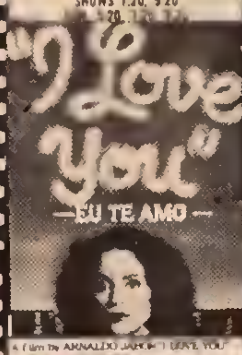 SHOWS 1:20, 3:20
"I Love
You"
—EU TE AMO—
A film by ARNALDO JABOR "I LOVE YOU"